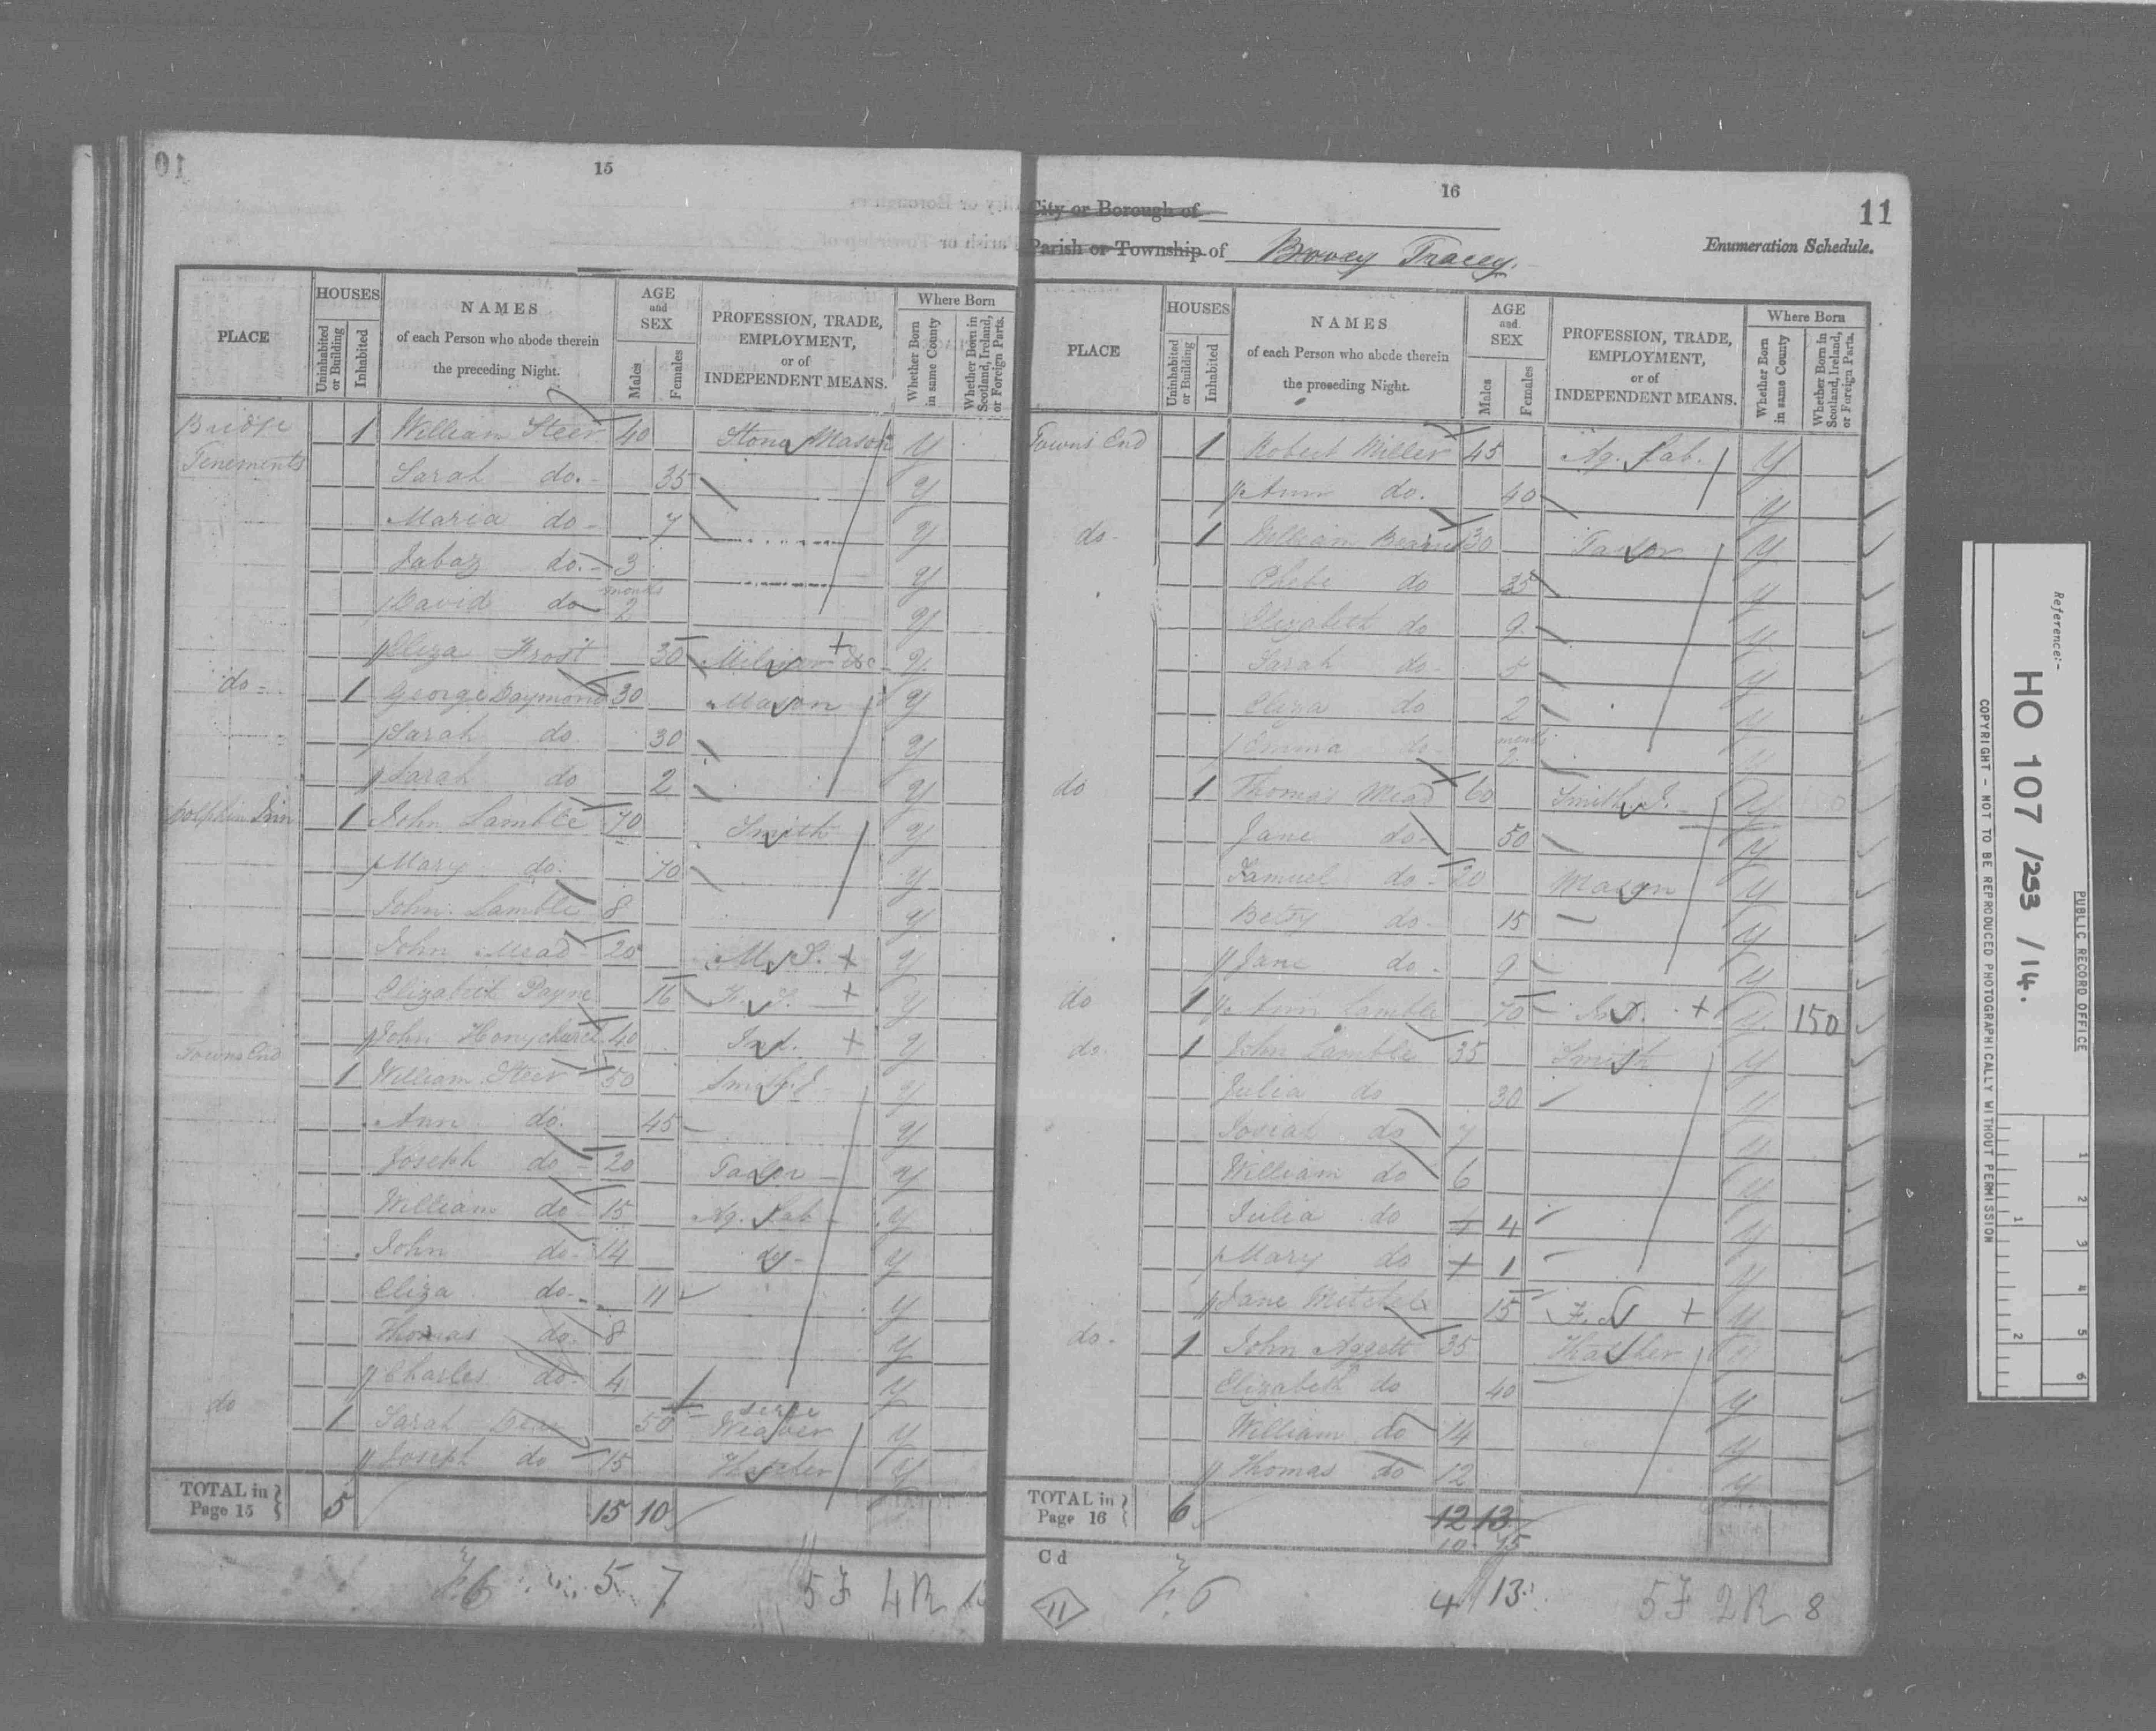 10
15
PLACE
HOUSES
Uninhabited or Building
Inhabited
NAMES
of each Person who abode therein
the preceding Night.
AGE and SEX
Males
Females
PROFESSION, TRADE, EMPLOYMENT, or of INDEPENDENT MEANS.
Where Born
Whether Born in same County
Whether Born in Scotland, Ireland, or Foreign Parts.
Bridge 1 William Steer 40 Stone Mason Y
Tenements Sarah do. 35 Y
Maria do 7 Y
Jabaz do. 3 Y
David do months 2 Y
Eliza Frost 30 &c Y
do 1 George Daymond 30 Mason Y
Sarah do 30 Y
Sarah do 2 Y
Dolphin Inn 1 John Lamble 70 Smith Y
Mary do. 70 Y
John Lamble 8 Y
John Mead 20 M.S. + Y
Elizabeth Payne 16 F.S. + Y
John Honychurch 40 Ind. + Y
Towns End 1 William Steer 50 Smith J. Y
Ann do. 45 Y
Joseph do 20 Tailor Y
William do 15 Ag. Lab Y
John do 14 do Y
Eliza do 11 Y
Thomas do. 8 Y
Charles do. 4 Y
do 1 Sarah 50 Serge Weaver Y
Joseph do 15 Hatter Y
TOTAL in Page 15 5 15 10
5 7 5F 4R
16
11
City or Borough of
Parish or Township of Bovey Tracey.
Enumeration Schedule.
PLACE
HOUSES
Uninhabited or Building
Inhabited
NAMES
of each Person who abode therein
the preceding Night.
AGE and SEX
Males
Females
PROFESSION, TRADE, EMPLOYMENT, or of INDEPENDENT MEANS.
Where Born
Whether Born in same County
Whether Born in Scotland, Ireland, or Foreign Parts.
Towns End 1 Robert Miller 45 Ag. Lab. Y
Ann do. 40 Y
do 1 William Bearne 30 Tailor Y
Phebe do 35 Y
Elizabeth do 9 Y
Sarah do 5 Y
Eliza do 2 Y
Emma do months 2 Y
do 1 Thomas Mead 60 Smith J. Y
Jane do 50 Y
Samuel do 20 Mason Y
Betsy do 15 Y
Jane do 9 Y
do 1 Ann Lamble 70 Ind. + Y 150
do 1 John Lamble 35 Smith Y
Julia do 30 Y
Josiah do 7 Y
William do 6 Y
Julia do 4 Y
Mary do 1 Y
Jane Mitchel 15 F.S. + Y
do 1 John Aggett 35 Hatter Y
Elizabeth do 40 Y
William do 14 Y
Thomas do 12 Y
TOTAL in Page 16 6 12 13
10 15
C d
11
4 13 5F 2R 8
Reference:-
HO 107 /253 /14.
PUBLIC RECORD OFFICE
COPYRIGHT - NOT TO BE REPRODUCED PHOTOGRAPHICALLY WITHOUT PERMISSION
1 2 3 4 5 6
1 2